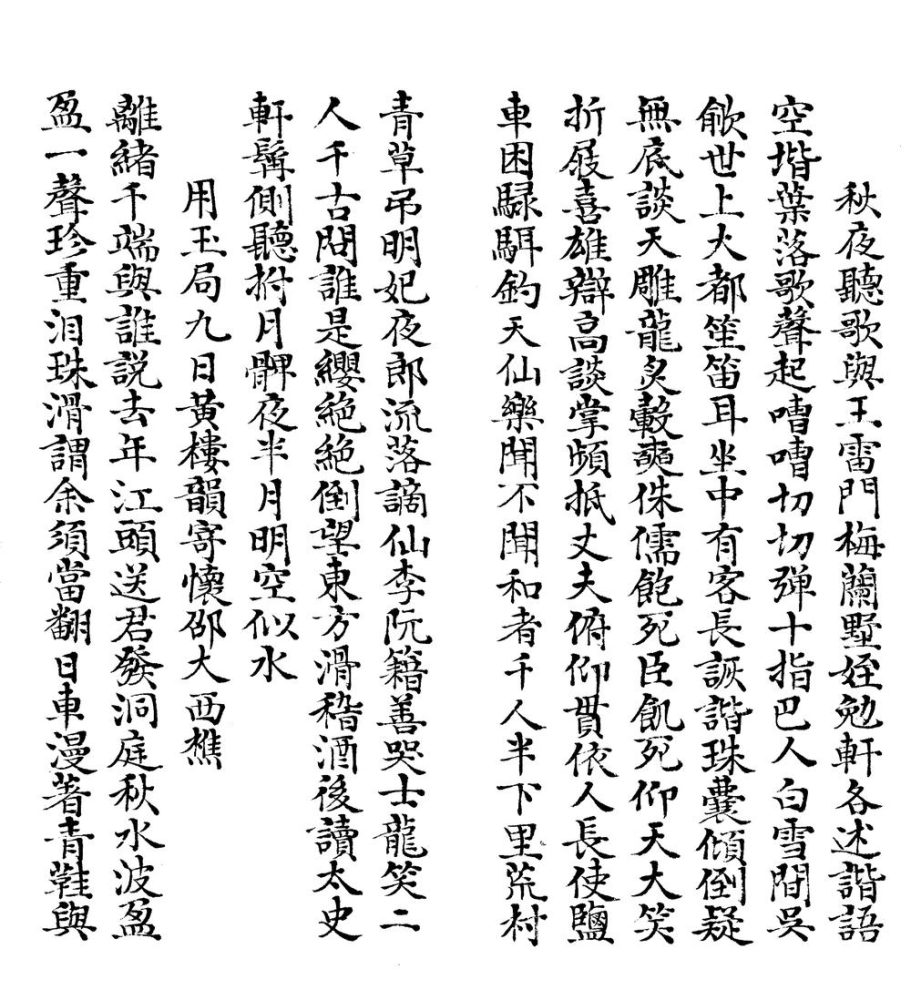 秋夜聽歌與王雷門梅蘭墅姪勉軒各述諧語
空堦葉落歌聲起嘈嘈切切弹十指巴人白雪間吳
歈世上大都笙笛耳坐中有客長詼諧珠囊傾倒疑
無底談天雕龍炙轂奭侏儒飽死臣飢死仰天大笑
折屐喜雄辯高談掌頻抵丈夫俯仰貫依人長使鹽
車困騄駬鈞天仙樂聞不聞和者千人半下里荒村
青草吊明妃夜郎流落謫仙李阮籍善哭士龍笑二
人千古問誰是纓絶絶倒望東方滑稽酒後讀太史
軒髯側聽拊月髀夜半月明空似水
用玉局九日黃樓韻寄懷邵大西樵
離緒千端與誰説去年江頭送君發洞庭秋水波盈
盈一聲珍重泪珠滑謂余須當翻日車漫著青鞋與